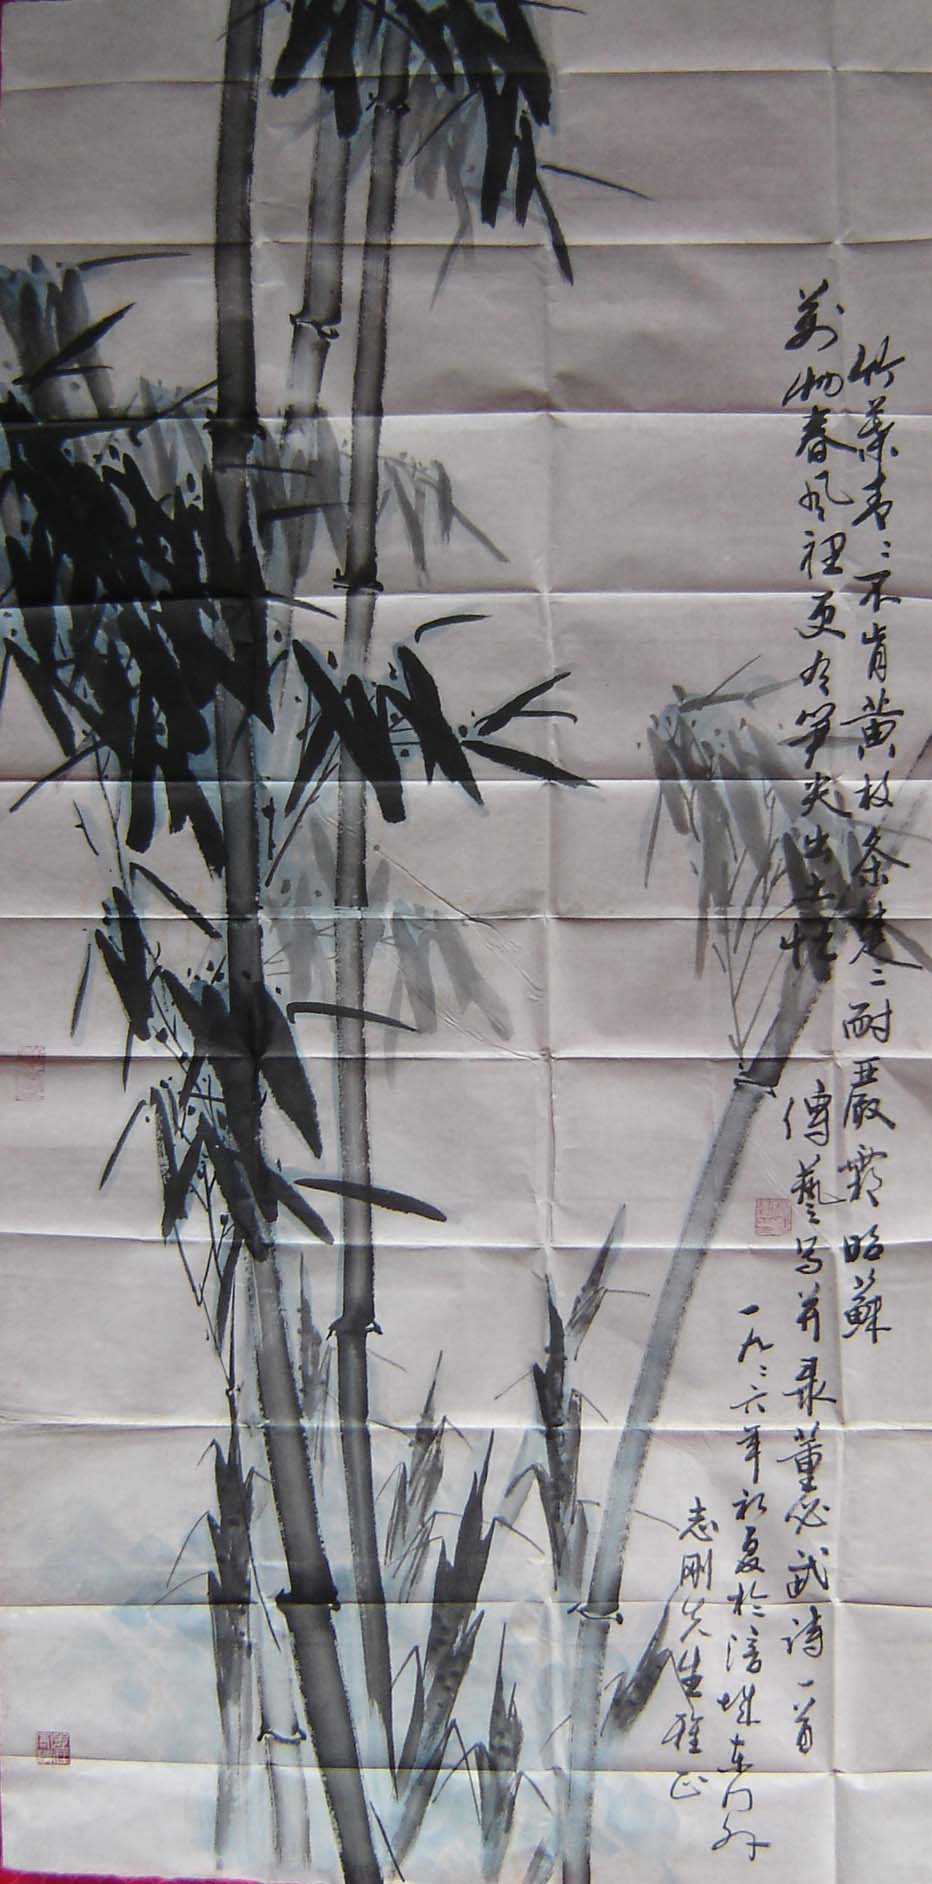 竹葉青〻不肯黄枝条楚〻耐嚴霜昭蘇
萬物春风裡更有笋尖出土忙
傅藝写并录董必武诗一首
一九〻六年初夏於涪城东门外
志刚先生雅正